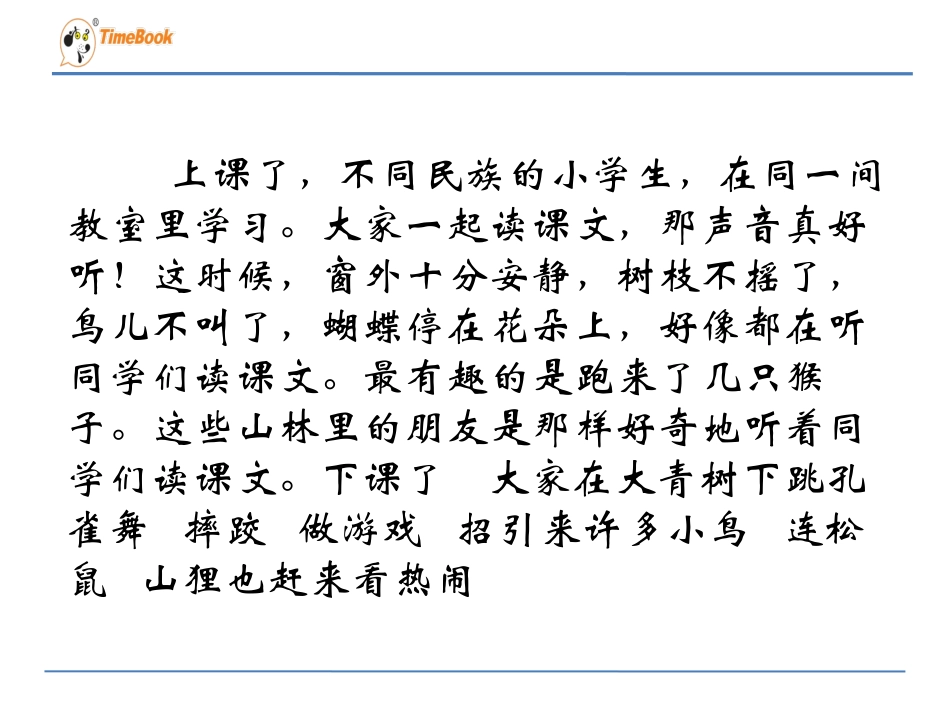 TimeBook®
上课了，不同民族的小学生，在同一间
教室里学习。大家一起读课文，那声音真好
听！这时候，窗外十分安静，树枝不摇了，
鸟儿不叫了，蝴蝶停在花朵上，好像都在听
同学们读课文。最有趣的是跑来了几只猴
子。这些山林里的朋友是那样好奇地听着同
学们读课文。下课了 大家在大青树下跳孔
雀舞 摔跤 做游戏 招引来许多小鸟 连松
鼠 山狸也赶来看热闹